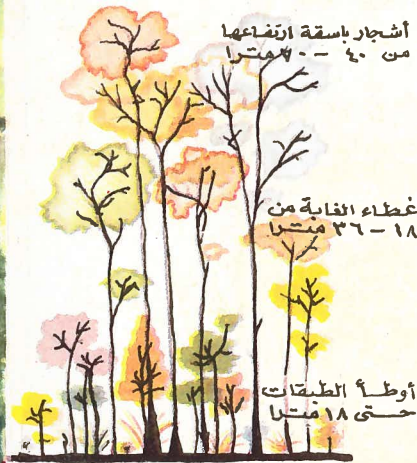 أشجار باسقة ارتفاعها
من ٤٠ – مترا
غطاء الغابة من
١٨ – ٣٦ مترا
أوطأ الطبقات
حتى ١٨ مترا